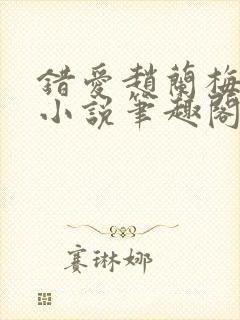 錯愛趙蘭梅
小說筆趣閣
賽琳娜